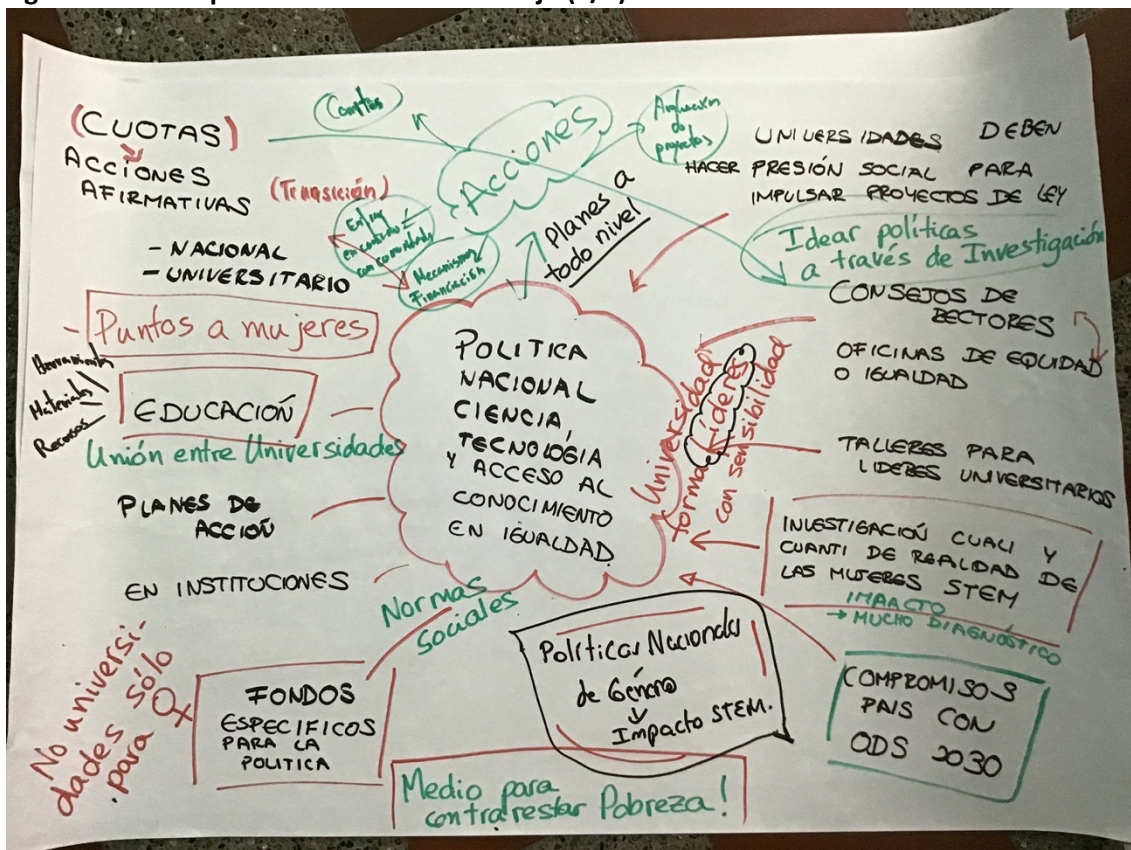 (CUOTAS)
ACCIONES
AFIRMATIVAS
(Transición)
- NACIONAL
- UNIVERSITARIO
- Puntos a mujeres
Herramientas
Materiales
Recursos
EDUCACIÓN
Unión entre Universidades
PLANES DE
ACCIÓN
EN INSTITUCIONES
No universi-
dades sólo
para ♀
FONDOS
ESPECIFICOS
PARA LA
POLITICA
Normas
Sociales
Acciones
en contrato
con comunidades
Mecanismos
Financiación
de
proyectos
Planes a
todo nivel
POLITICA
NACIONAL
CIENCIA,
TECNOLOGIA
Y ACCESO AL
CONOCIMIENTO
EN IGUALDAD
Universidad
forma Líderes
con sensibilidad
Políticas Nacionales
de Género
Impacto STEM.
Medio para
contrarestar Pobreza!
UNIVERSIDADES DEBEN
HACER PRESIÓN SOCIAL PARA
IMPULSAR PROYECTOS DE LEY
Idear políticas
a través de Investigación
CONSEJOS DE
RECTORES
OFICINAS DE EQUIDAD
O IGUALDAD
TALLERES PARA
LIDERES UNIVERSITARIOS
INVESTIGACIÓN CUALI Y
CUANTI DE REALIDAD DE
LAS MUJERES STEM
IMPACTO
→ MUCHO DIAGNÓSTICO
COMPROMISOS
PAIS CON
ODS 2030